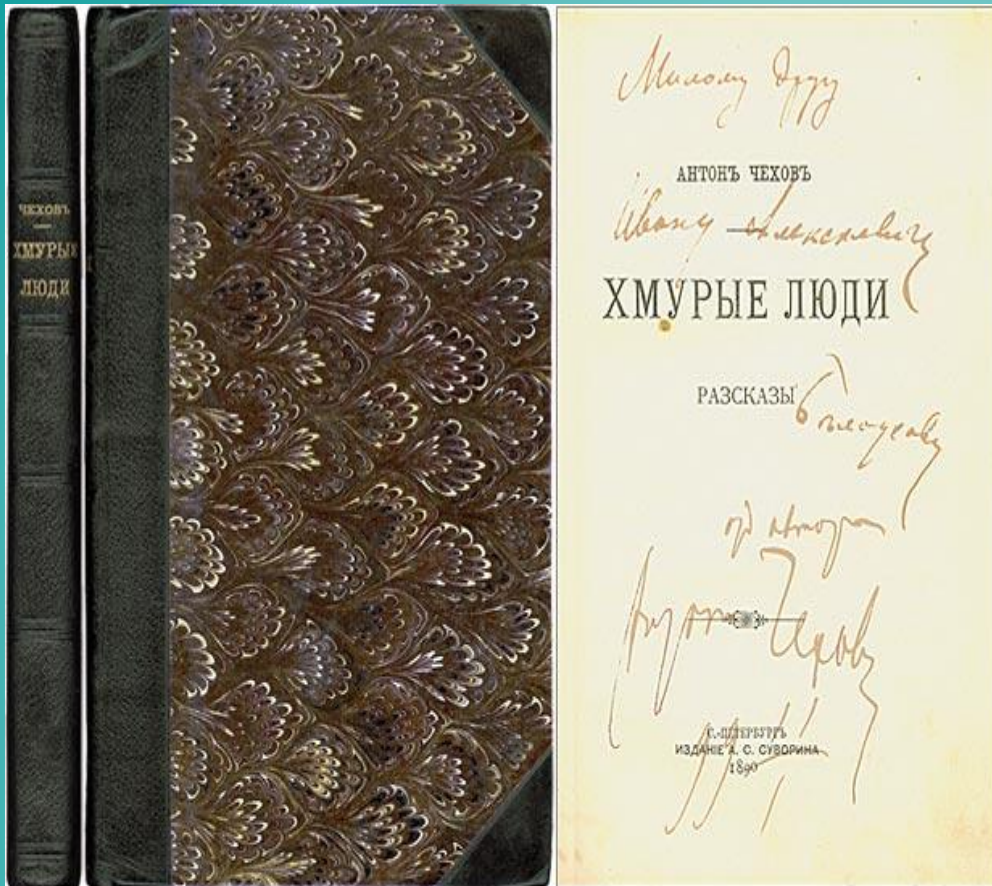 ЧЕХОВЪ
ХМУРЫЕ
ЛЮДИ
Милому другу
АНТОНЪ ЧЕХОВЪ
Ивану Алексеевичу
ХМУРЫЕ ЛЮДИ
РАЗСКАЗЫ
от автора
Чехов
С.-ПЕТЕРБУРГЪ
ИЗДАНІЕ А. С. СУВОРИНА
1890